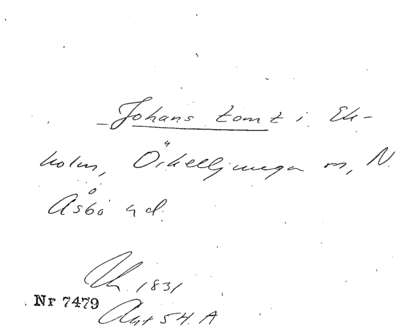 Johans tomt i Ek-
holm, Örkelljunga sn, N.
Åsbo hd.
Uh. 1831
Nr 7479
Akt 54. A